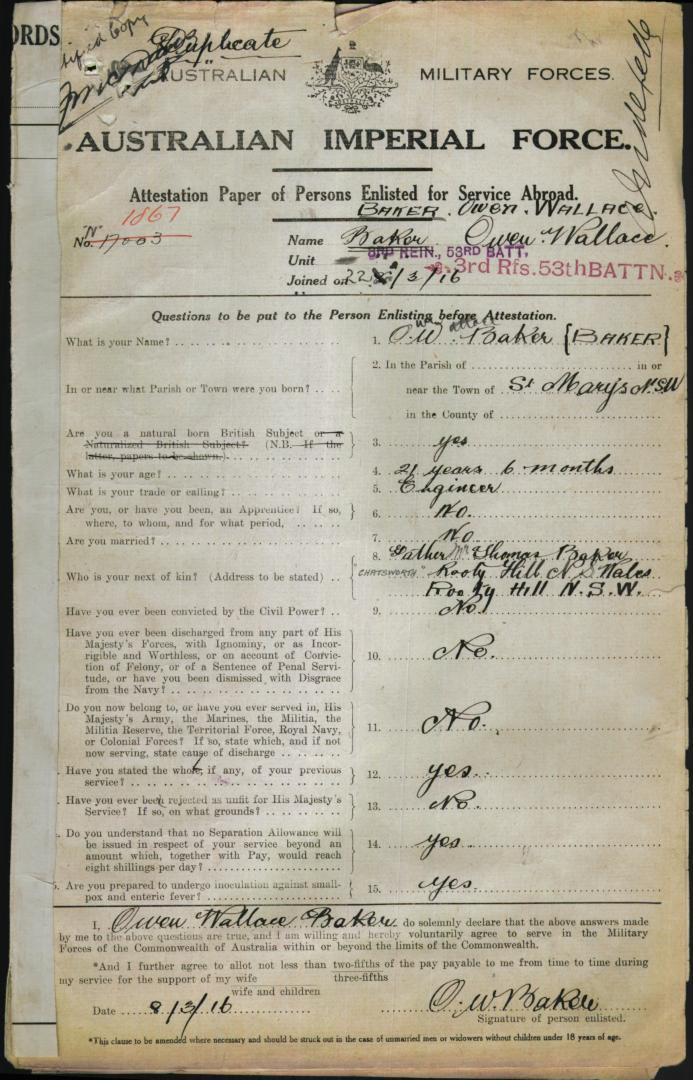 ORDS
Duplicate
AUSTRALIAN MILITARY FORCES.
AUSTRALIAN IMPERIAL FORCE.
Attestation Paper of Persons Enlisted for Service Abroad.
BAKER. Owen. WALLACE.
"N" 1867
No. 17003 Name Baker Owen Wallace.
Unit 3RD REIN., 53RD BATT. 3rd Rfs. 53th BATTN.
Joined on 22/3/16
Questions to be put to the Person Enlisting before Attestation.
What is your Name? 1. O.W. Baker [BAKER]
2. In the Parish of in or
In or near what Parish or Town were you born? near the Town of St Marys N.S.W
in the County of
Are you a natural born British Subject or a
Naturalized British Subject? (N.B. If the
latter, papers to be shown.) 3. yes
What is your age? 4. 21 years 6 months
What is your trade or calling? 5. Engineer
Are you, or have you been, an Apprentice? If so,
where, to whom, and for what period, 6. No.
Are you married? 7. No
8. Father Mr Thomas Baker
Who is your next of kin? (Address to be stated) "CHATSWORTH" Rooty Hill N S Wales
Rooty Hill N.S.W.
Have you ever been convicted by the Civil Power? 9. No
Have you ever been discharged from any part of His
Majesty's Forces, with Ignominy, or as Incor-
rigible and Worthless, or on account of Convic-
tion of Felony, or of a Sentence of Penal Servi-
tude, or have you been dismissed with Disgrace
from the Navy? 10. No.
Do you now belong to, or have you ever served in, His
Majesty's Army, the Marines, the Militia, the
Militia Reserve, the Territorial Force, Royal Navy,
or Colonial Forces? If so, state which, and if not
now serving, state cause of discharge 11. No.
Have you stated the whole, if any, of your previous
service? 12. yes.
Have you ever been rejected as unfit for His Majesty's
Service? If so, on what grounds? 13. No.
Do you understand that no Separation Allowance will
be issued in respect of your service beyond an
amount which, together with Pay, would reach
eight shillings per day? 14. yes
Are you prepared to undergo inoculation against small-
pox and enteric fever? 15. yes.
I, Owen Wallace Baker do solemnly declare that the above answers made
by me to the above questions are true, and I am willing and hereby voluntarily agree to serve in the Military
Forces of the Commonwealth of Australia within or beyond the limits of the Commonwealth.
*And I further agree to allot not less than two-fifths of the pay payable to me from time to time during
three-fifths
my service for the support of my wife
wife and children
Date 8/3/16 O.W. Baker
Signature of person enlisted.
*This clause to be amended where necessary and should be struck out in the case of unmarried men or widowers without children under 18 years of age.